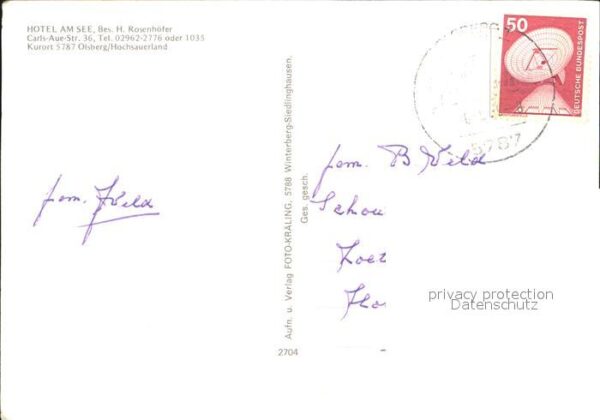 HOTEL AM SEE, Bes. H. Rosenhöfer
Carls-Aue-Str. 36, Tel. 02962-2776 oder 1035
Kurort 5787 Olsberg/Hochsauerland
fam. Weld
Aufn. u. Verlag FOTO-KRALING, 5788 Winterberg-Siedlinghausen,
Ges. gesch.
2704
50
DEUTSCHE BUNDESPOST
5787
fam. B Weld
Schou
Zoet
privacy protection
Datenschutz